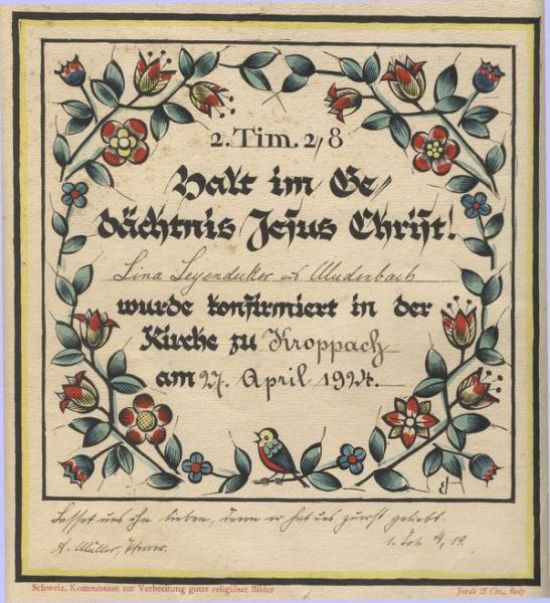 2. Tim. 2,8
Halt im Ge-
dächtnis Jesus Christ!
Lina Leyendecker aus Mudenbach
wurde konfirmiert in der
Kirche zu Kroppach
am 27. April 1924.
Lasset uns ihn lieben, denn er hat uns zuerst geliebt.
1. Joh. 4, 19.
A. Müller, Pfarrer.
Schweiz. Kommission zur Verbreitung guter religiöser Bilder